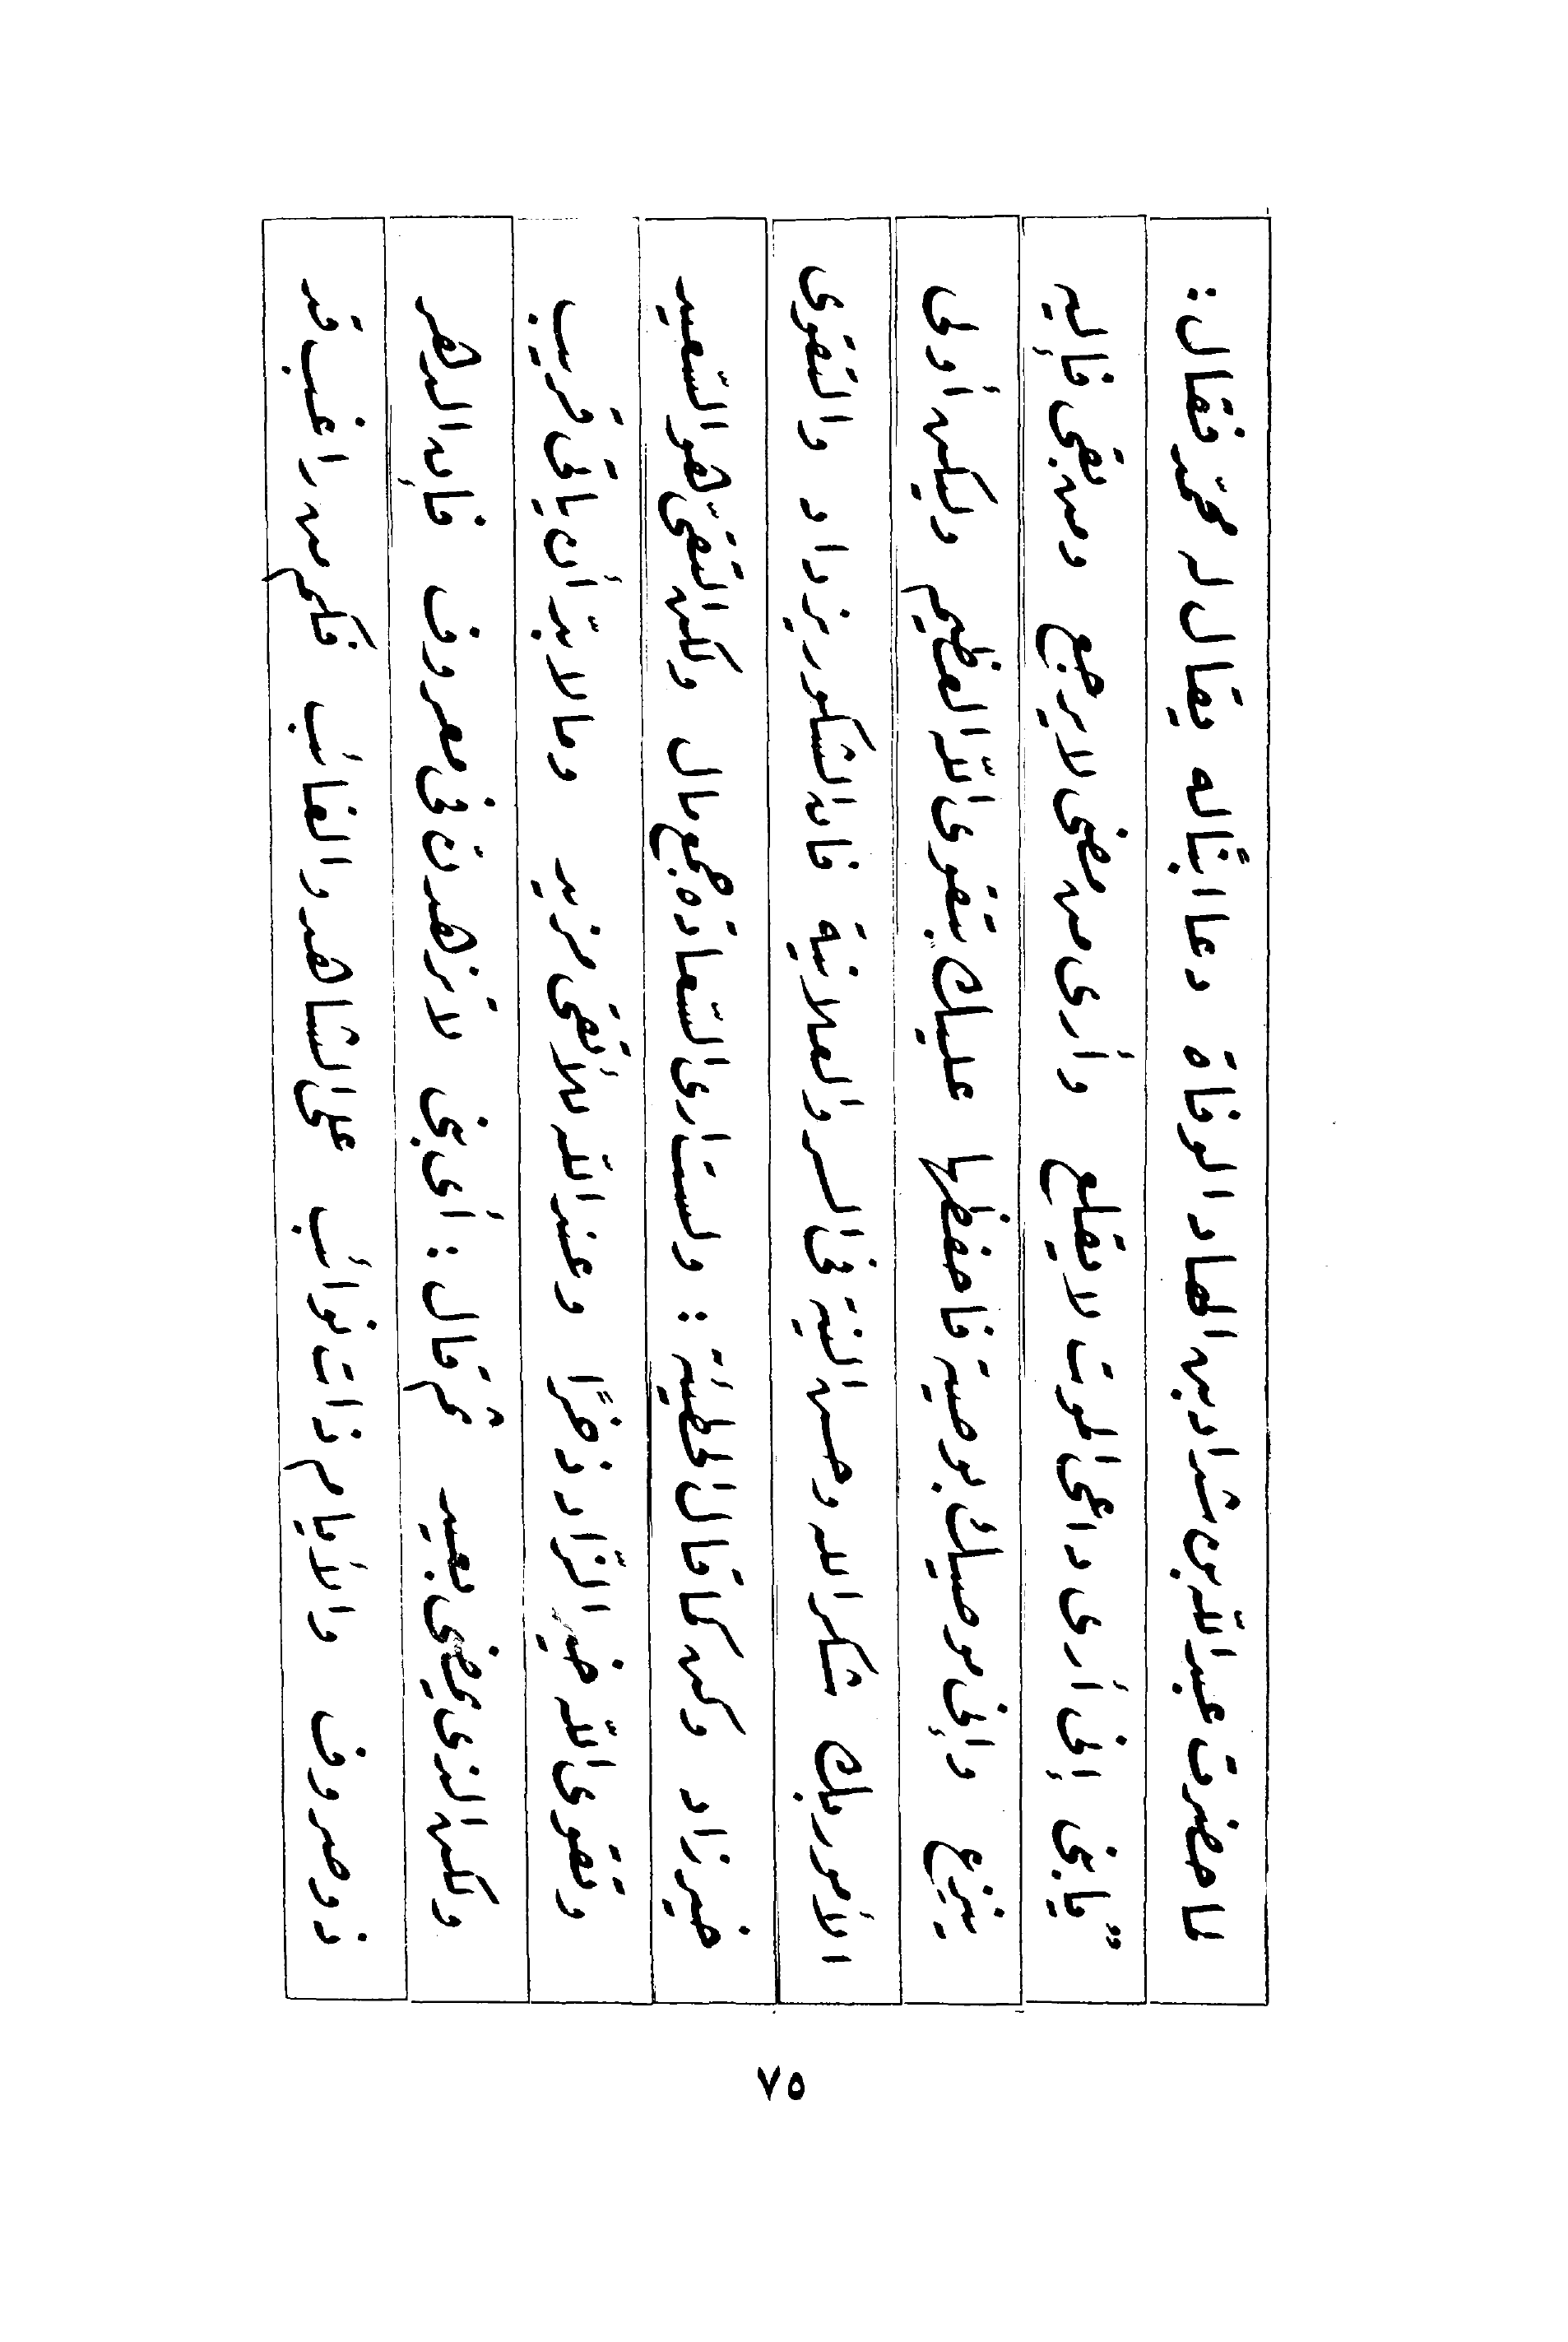 لما حضرت عبد اللّه بن شداد بن الهاد الوفاة دعا ابنًا له يقال له محمّد فقال :
"يا بنى إنى أرى داعى الموت لا يقلع وأرى من مضى لا يرجع ومن بقى فإليه
ينزع وإنى موصيك بوصية فاحفظها عليك بتقوى اللّه العظيم وليكن أولى
الأمور بك شكر الله وحسن النية فى السر والعلانية فان الشكور يزداد والتقوى
خير زاد وكن كما قال الحطيئة : ولست أرى السّعادة جمع مال ولكن التقىّ هو السّعيد
وتقوى اللّه خير الزّاد ذخرًا وعند اللّه للأتقى مزيد وما لا بدّ أن يأتى قريب
ولكن الذى يمضى بعيد ثم قال : أى بنى لا تزهدنّ فى معروف فإن الدهر
ذو صروف والأيام ذات نوائب على الشاهد والغائب فكم من راغب قد
٧٥